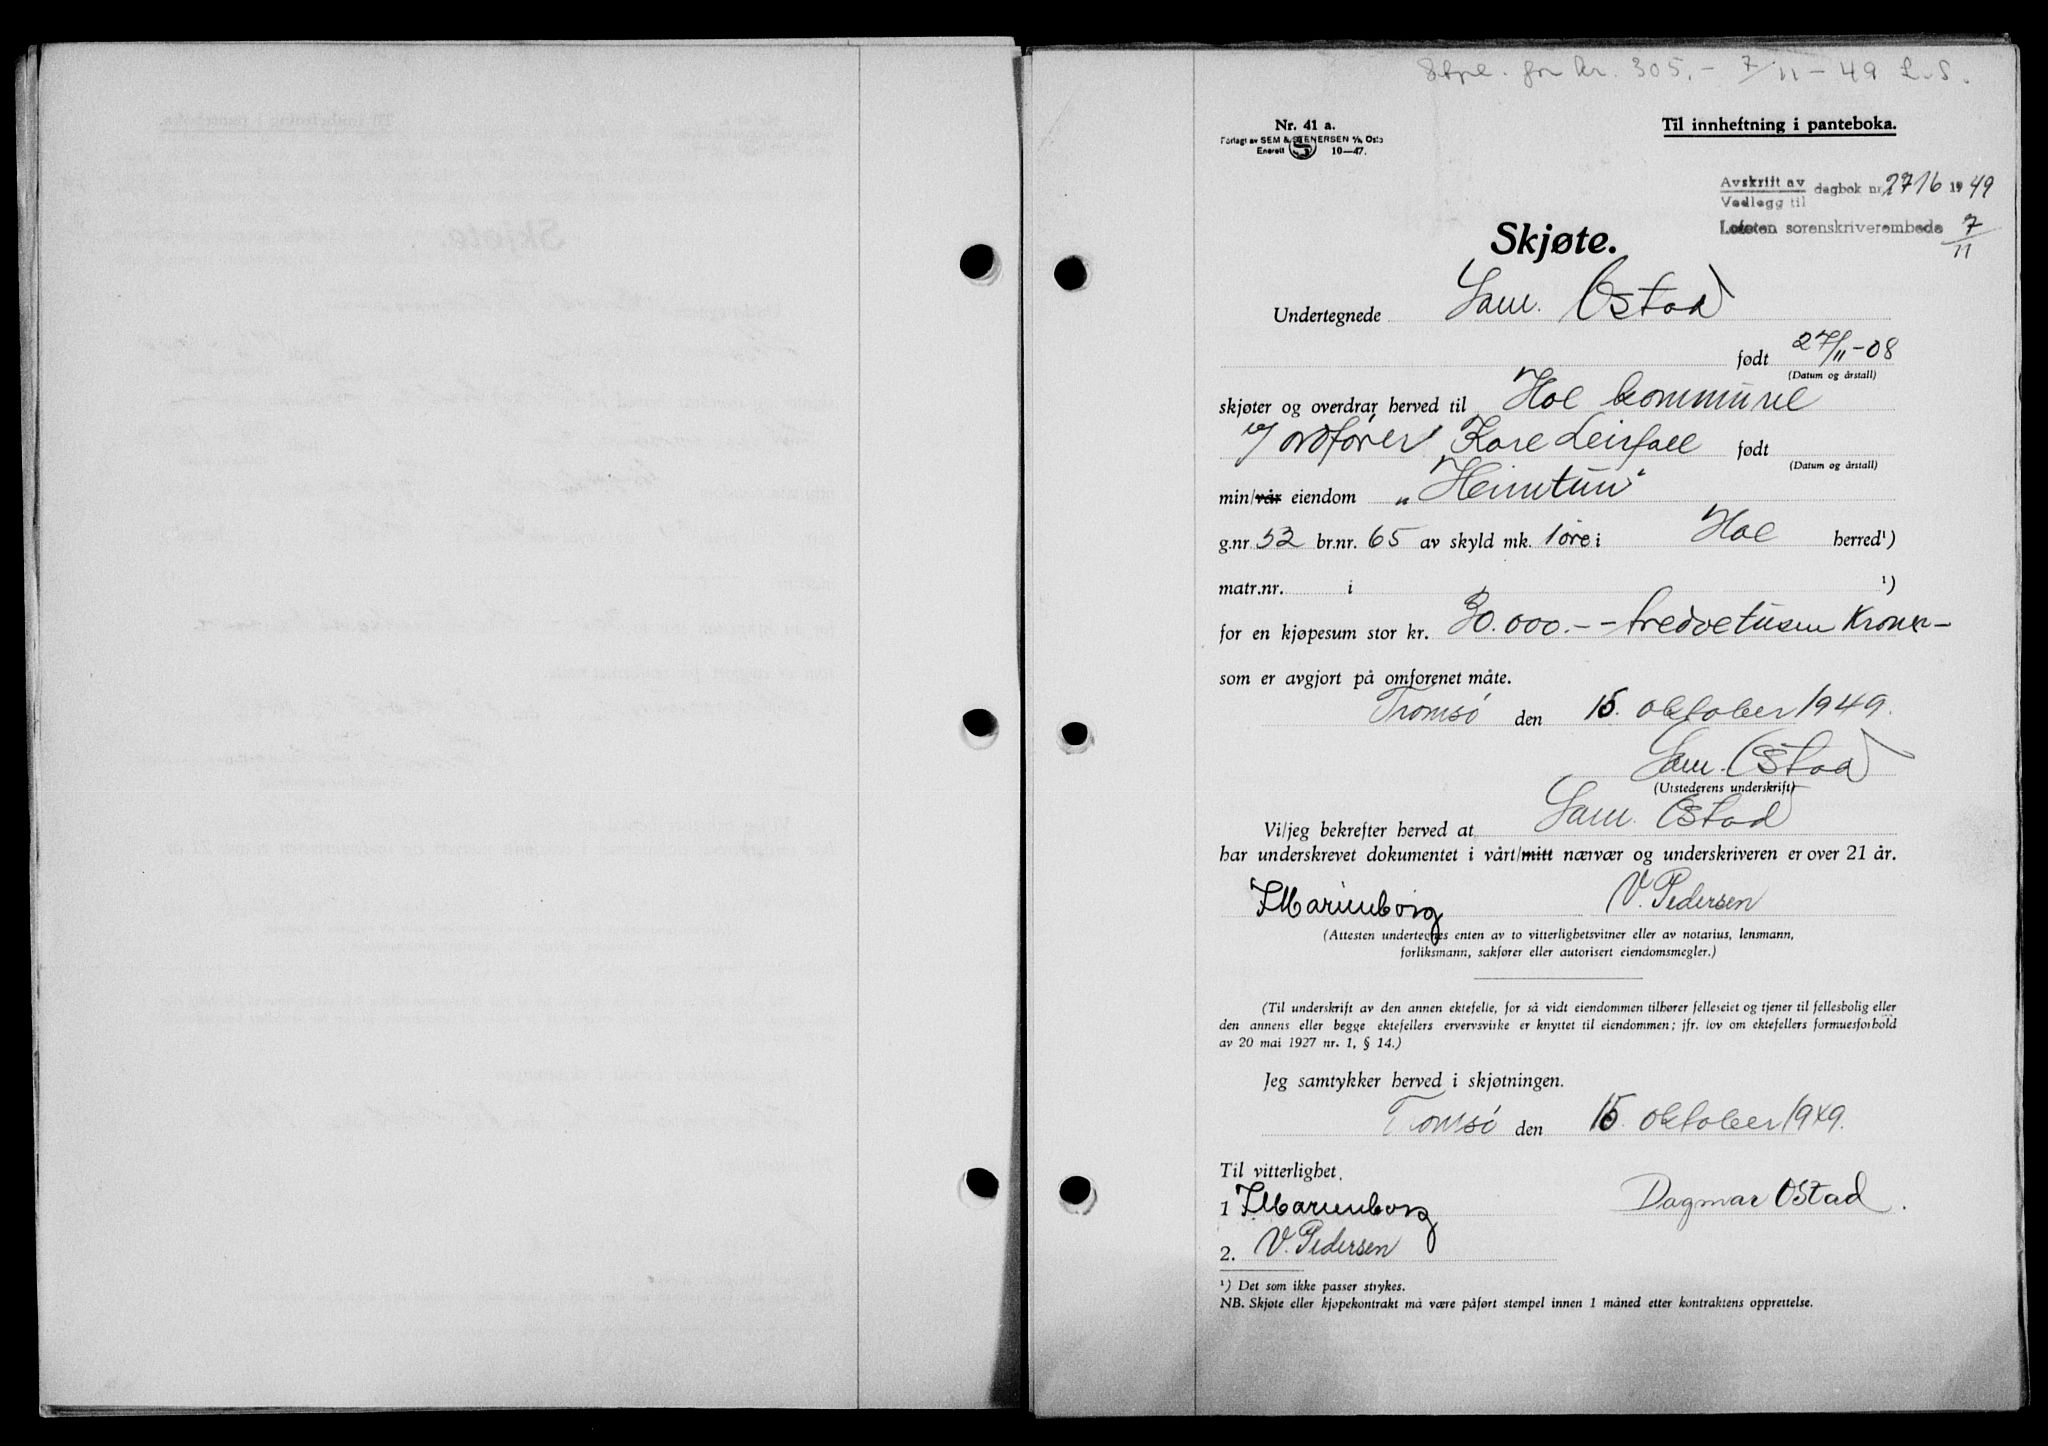 Stpl. for kr. 305.- 7/11-49 L.S.
Nr. 41 a.
Forlagt av SEM & STENERSEN A/S Oslo
Enerett 10—47.
Til innheftning i panteboka.
Avskrift av
Vedlegg til
dagbok nr. 2716 1949
Lofoten sorenskriverembede 7/11
Skjøte.
Undertegnede Sam. Ostad
født 27/11-08
(Datum og årstall)
skjøter og overdrar herved til Hol kommune
v/ ordfører Kare Leirfall født
(Datum og årstall)
min/vår eiendom „Heimtun"
g.nr. 52 br.nr. 65 av skyld mk. 1 øre i Hol herred¹)
matr.nr. i ¹)
for en kjøpesum stor kr. 30.000.-- tredvetusen Kroner-
som er avgjort på omforenet måte.
Tromsø den 15. oktober 1949.
Sam. Ostad
(Utstederens underskrift)
Vi/jeg bekrefter herved at Sam. Ostad
har underskrevet dokumentet i vårt/mitt nærvær og underskriveren er over 21 år.
Marienborg V. Pedersen
(Attesten undertegnes enten av to vitterlighetsvitner eller av notarius, lensmann,
forliksmann, sakfører eller autorisert eiendomsmegler.)
(Til underskrift av den annen ektefelle, for så vidt eiendommen tilhører felleseiet og tjener til fellesbolig eller
den annens eller begge ektefellers ervervsvirke er knyttet til eiendommen; jfr. lov om ektefellers formuesforhold
av 20 mai 1927 nr. 1, § 14.)
Jeg samtykker herved i skjøtningen.
Tromsø den 15. oktober 1949.
Til vitterlighet.
1 Marienborg
Dagmar Ostad.
2. V. Pedersen
¹) Det som ikke passer strykes.
NB. Skjøte eller kjøpekontrakt må være påført stempel innen 1 måned etter kontraktens opprettelse.